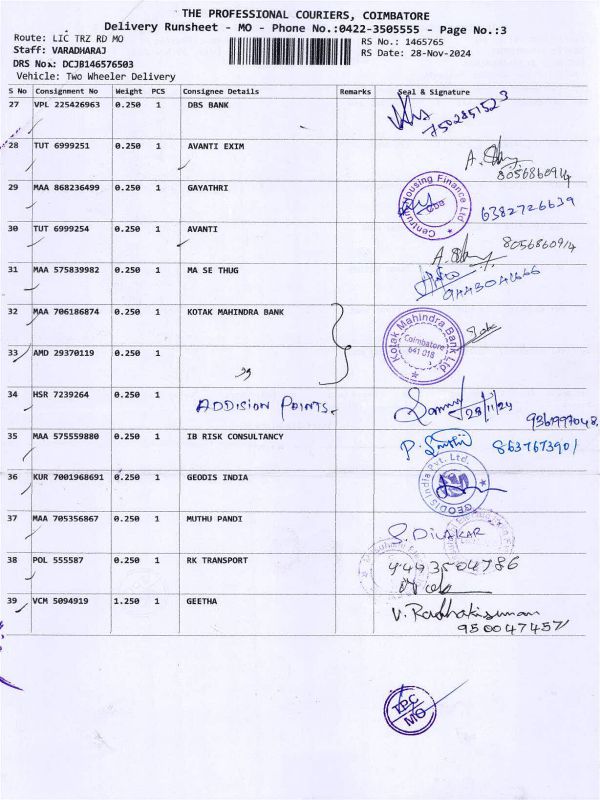 THE PROFESSIONAL COURIERS, COIMBATORE
Delivery Runsheet - MO - Phone No.:0422-3505555 - Page No.:3
Route: LIC TRZ RD MO RS No.: 1465765
Staff: VARADHARAJ RS Date: 28-Nov-2024
DRS No.: DCJB146576503
Vehicle: Two Wheeler Delivery
S No Consignment No Weight PCS Consignee Details Remarks Seal & Signature
27 VPL 225426963 0.250 1 DBS BANK
7502851523
28 TUT 6999251 0.250 1 AVANTI EXIM
8056860914
29 MAA 868236499 0.250 1 GAYATHRI
Centrum Housing Finance Ltd
6382726639
30 TUT 6999254 0.250 1 AVANTI
8056860914
31 MAA 575839982 0.250 1 MA SE THUG
32 MAA 706186874 0.250 1 KOTAK MAHINDRA BANK
Kotak Mahindra Bank Ltd.
Coimbatore
641 018
33 AMD 29370119 0.250 1
34 HSR 7239264 0.250 1 ADDISION POINTS.
28/11/24
35 MAA 575559880 0.250 1 IB RISK CONSULTANCY
8637673901
36 KUR 7001968691 0.250 1 GEODIS INDIA
GEODIS India Pvt. Ltd.
37 MAA 705356867 0.250 1 MUTHU PANDI
S. DIVAKAR
38 POL 555587 0.250 1 RK TRANSPORT
9443504786
39 VCM 5094919 1.250 1 GEETHA
V. Radhakisunan
9500474571
TPC
MO